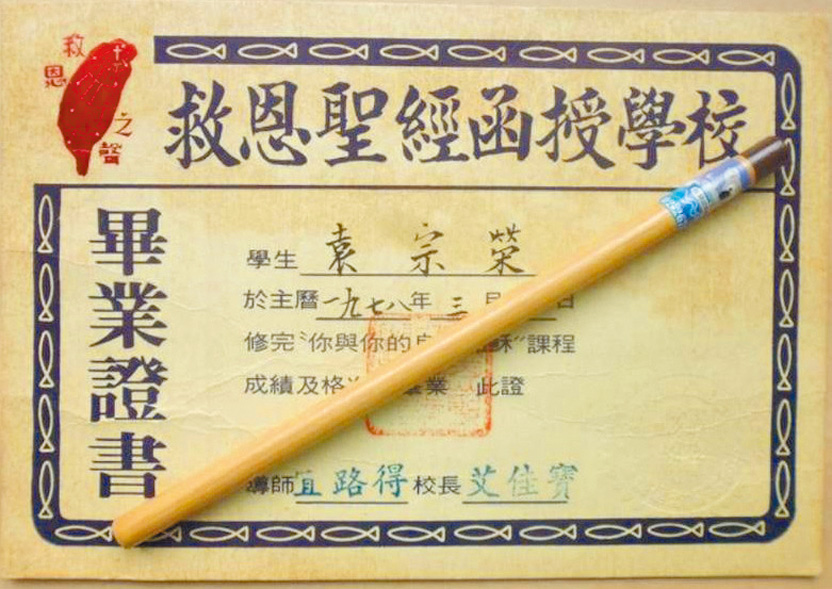 救恩之聲
救恩聖經函授學校
畢業證書
學生 袁宗榮
於主曆一九七八年三月 日
修完“你與你的 穌”課程
成績及格 畢業 此證
導師 宜路得 校長 艾佳寶